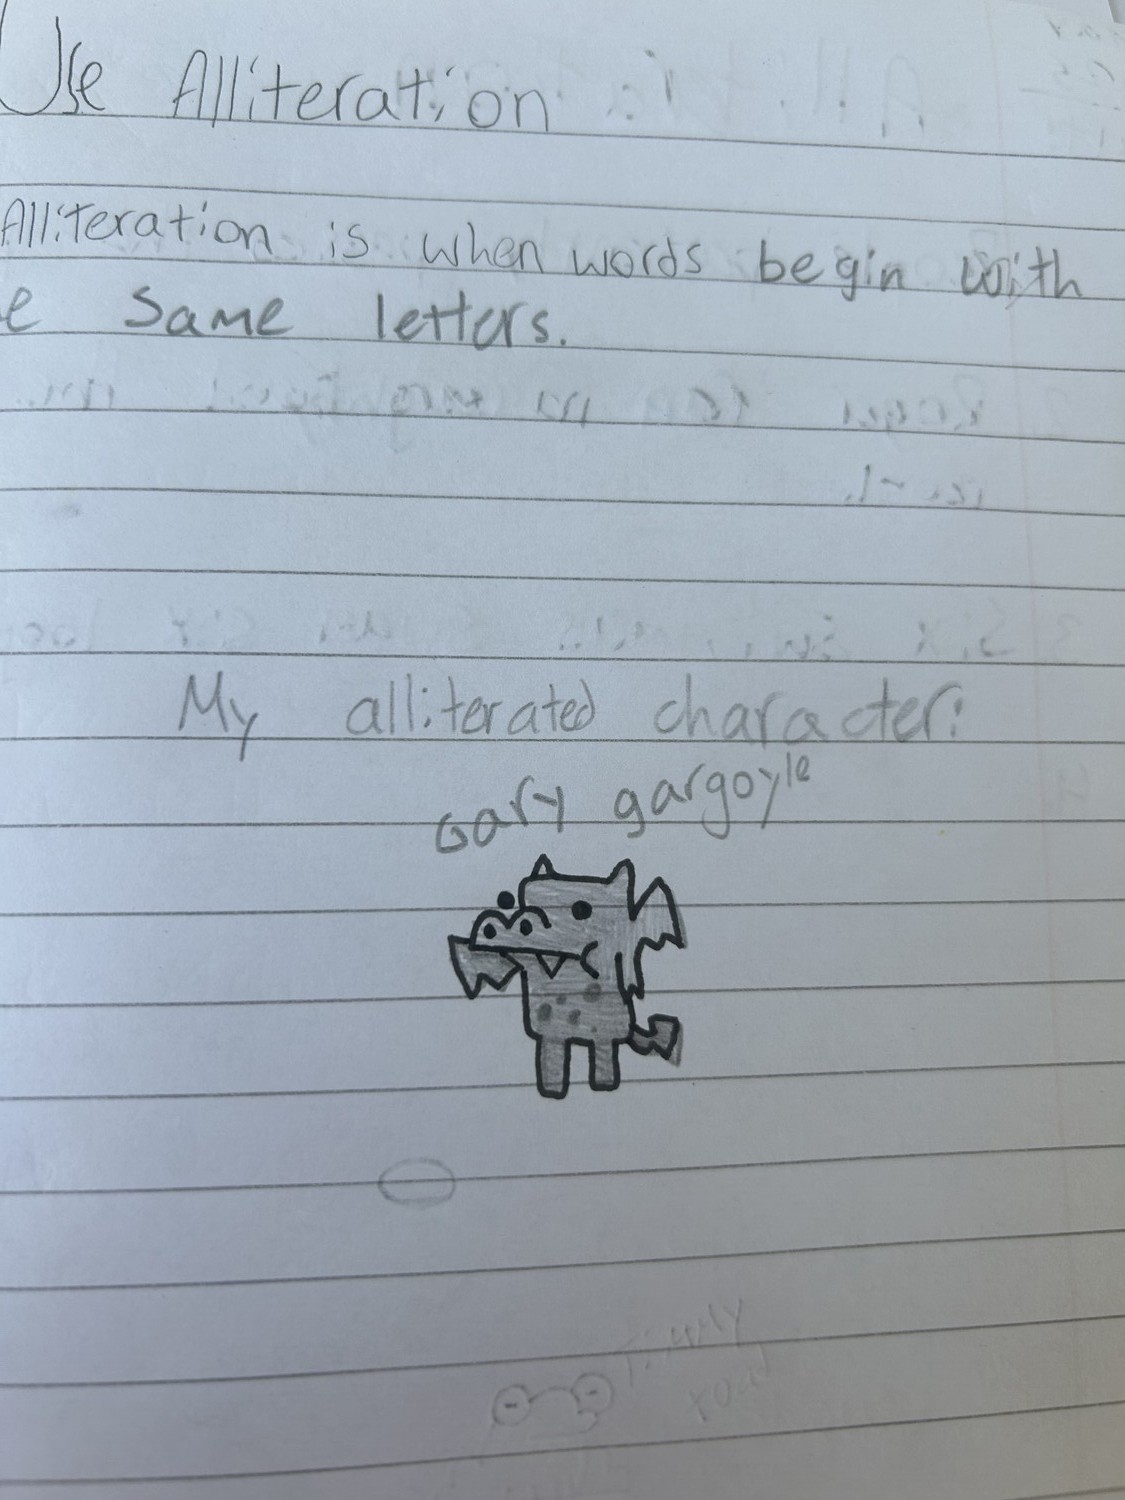 Use Alliteration
Alliteration is when words begin with
e same letters.
My alliterated character:
Gary gargoyle